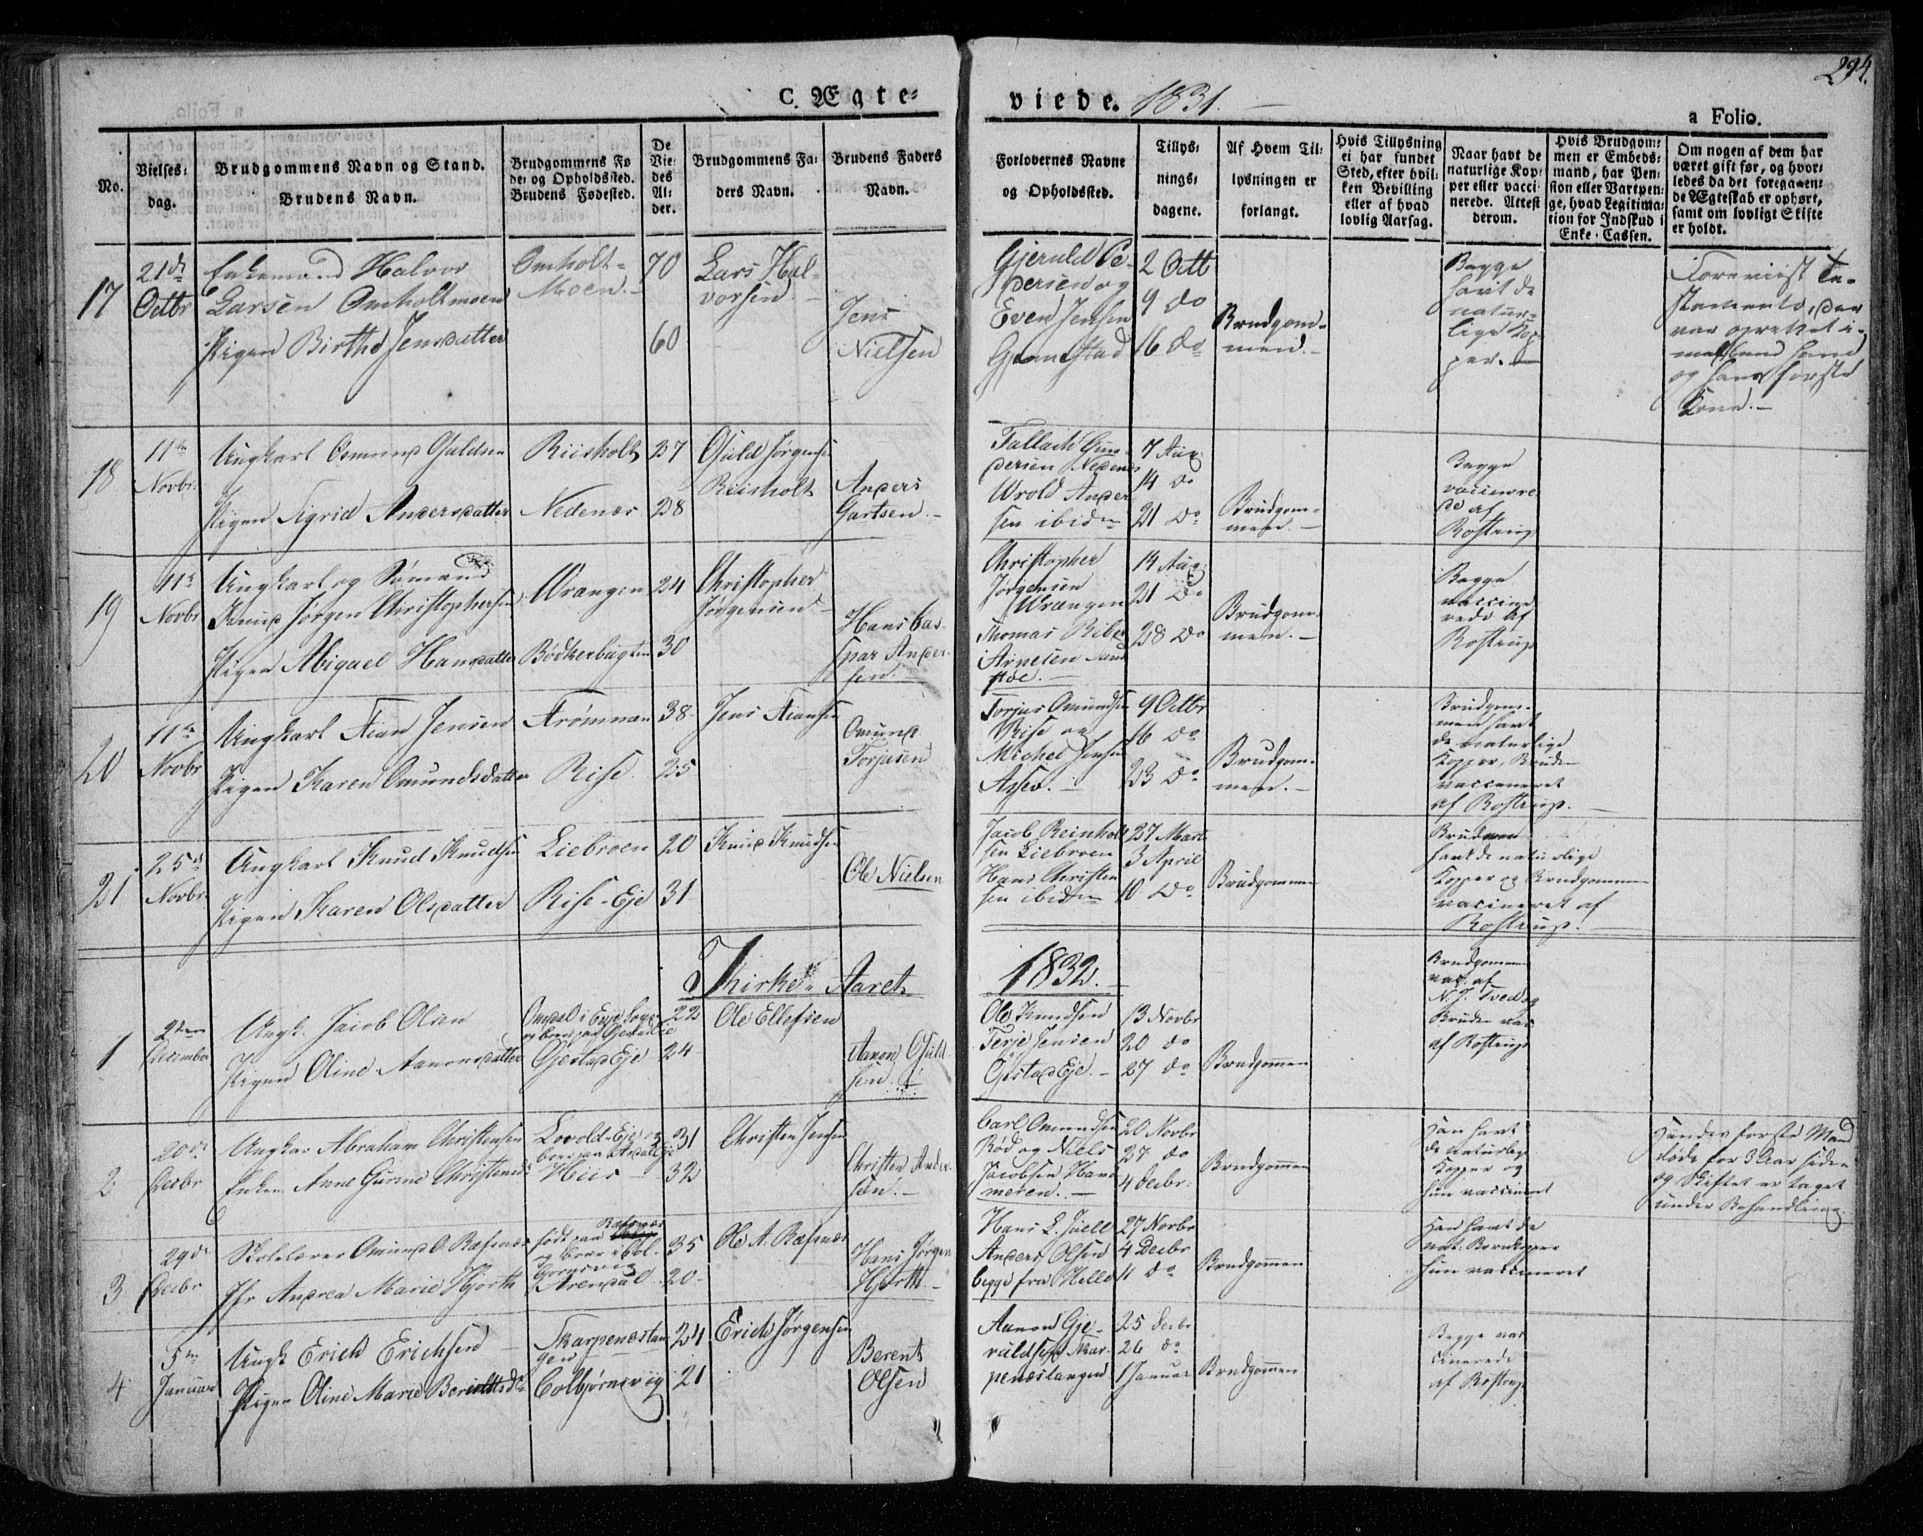 294.
C. Ægte=
viede. 1831.
a Folio.
No.
Vielses=
dag.
Brudgommens Navn og Stand.
Brudens Navn.
Brudgommens Fø
de= og Opholdssted.
Brudens Fødested.
De
Vie=
des
Al=
der.
Brudgommens Fa=
ders Navn.
Brudens Faders
Navn.
Forlovernes Navne
og Opholdssted.
Tillys=
nings=
dagene.
Af Hvem Til=
lysningen er
forlangt.
Hvis Tillysning
ei har fundet
Sted, efter hvil=
ken Bevilling
eller af hvad
lovlig Aarsag.
Naar havt de
naturlige Kop=
per eller vacci=
nerede. Attest
derom.
Hvis Brudgom=
men er Embeds=
mand, har Pen=
sion eller Vartpen=
ge, hvad Legitima=
tion for Indskud i
Enke=Cassen.
Om nogen af dem har
været gift før, og hvor=
ledes da det foregaaen=
de Ægteskab er ophørt,
samt om lovligt Skifte
er holdt.
17
21de
Octbr
Enkemand Halvor
Larsen Omholtmoen
Pigen Birthe Jensdatter
Omholt=
Moen
70
60
Lars Hal=
vorsen
Jens
Nielsen
Gjeruld Pe=
dersen og
Even Jensen
2 Octb
9 do
16 do
Brudgom=
men.
Begge
havt de
natur=
lige Kop
per.
Foreviist Te=
stamente, der
var oprettet i=
mellem ham
og hans første
Kone.
18
11te
Novbr.
Ungkarl Osmund Guldsen
Pigen Sigrid Andersdatter
Riisholt
Nedenæs
27
28
Guld Jørgensen
Riisholt
Anders
Gartsen.
Tallach Gun=
dersen Nedenes
Wrold Ander
sen ibidem
7 Aug:
14 do
21 do
Brudgom=
men.
Begge
vaccinere
de af
Rostrup
19
11te
Novbr
Ungkarl og Sømand
Knud Jørgen Christophersen
Pigen Abigael Hansdatter
Wrangen
Bødkerbugten
24
30
Christopher
Jørgensen
Hans Cas
par Ander
sen.
Christopher
Jørgensen
Wrangen
Thomas Riber
Arnesen Sand
støe.
14 Aug:
21 do
28 do
Brudgom=
men.
Begge
vaccine
rede af
Rostrup
20
11te
Novbr
Ungkarl Tian Jensen
Pigen Karen Omundsdatter
Trømnæs
Rise
38
25
Jens Tiansen
Omund
Torjusen
Torjus Omundsen
Rise og
Michel Jensen
9 Octbr
16 do
23 do
Brudgom=
men.
Brudgom=
men havt
de naturlige
Kopper, Bruden
vaccineret
af Rostrup.
21
25de
Novbr
Ungkarl Knud Knudsen
Pigen Karen Olsdatter
Liebroen
Rise=Eje
20
31
Knud Knudsen
Ole Nielsen
Jacob Reinholt
sen Liebroen
Hans Christen
sen ibidem
27 Marts
3 April
10 do
Brudgommen
Bruden
havt de naturlige
Kopper og Brudgommen
vaccineret af
Rostrup.
Kirke Aaret
1832.
1
2den
December
Ungk. Jacob Olsen
Pigen Oline Aanonsdatter
Gjestad Eje
22
24
Ole Ellefsen
Aanon Guld
sen
Ole Knudsen
Terje Jensen
Gjestad Eje.
13 Novbr
20 do
27 do
Brudgommen
Brudgommen
vac. af
N. J. Tvedt og
Bruden vac
af Rostrup
2
20de
Decbr
Ungkar Abraham Christensen
Enken Anne Gurine Christensd
Lovold=Eje
Hiis
31
32
Christen Jensen
Christen Ander
sen.
Carl Omundsen
Rød og Niels
Jacobsen Ham
meren.
20 Novbr
27 do
4 Decbr.
Brudgommen
Han havt
de naturlige
Kopper og
hun vaccineret
Hendes første Mand
døde for 3 Aar siden
og Skiftet er taget
under Behandling.
3
29de
Decbr
Skolelærer Omund O. Ræfnæs
Jfr Andrea Marie Hjorth
født paa Ræfnæs
og boer i Col=
Arendal
35
20
Ole A. Ræfnæs
Hans Jørgen
Hjorth.
Hans L. Juell
Anders Olsen
begge fra Helle
27 Novbr
4 Decbr
11 do
Brudgommen
Han havt de
nat. Børnkopper
hun vaccineret
4
5te
Januar
Ungk Erich Erichsen
Pigen Oline Marie Berentsd
Skarpenæstan
gen
Colbjørnsvig
24
21
Erich Jørgensen
Berent
Olsen
Aanon Gje=
ruldsen Skar=
penæstangen
25 Decbr
26 do
1 Januar
Brudgommen
Begge vac
cinerede
af Rostrup